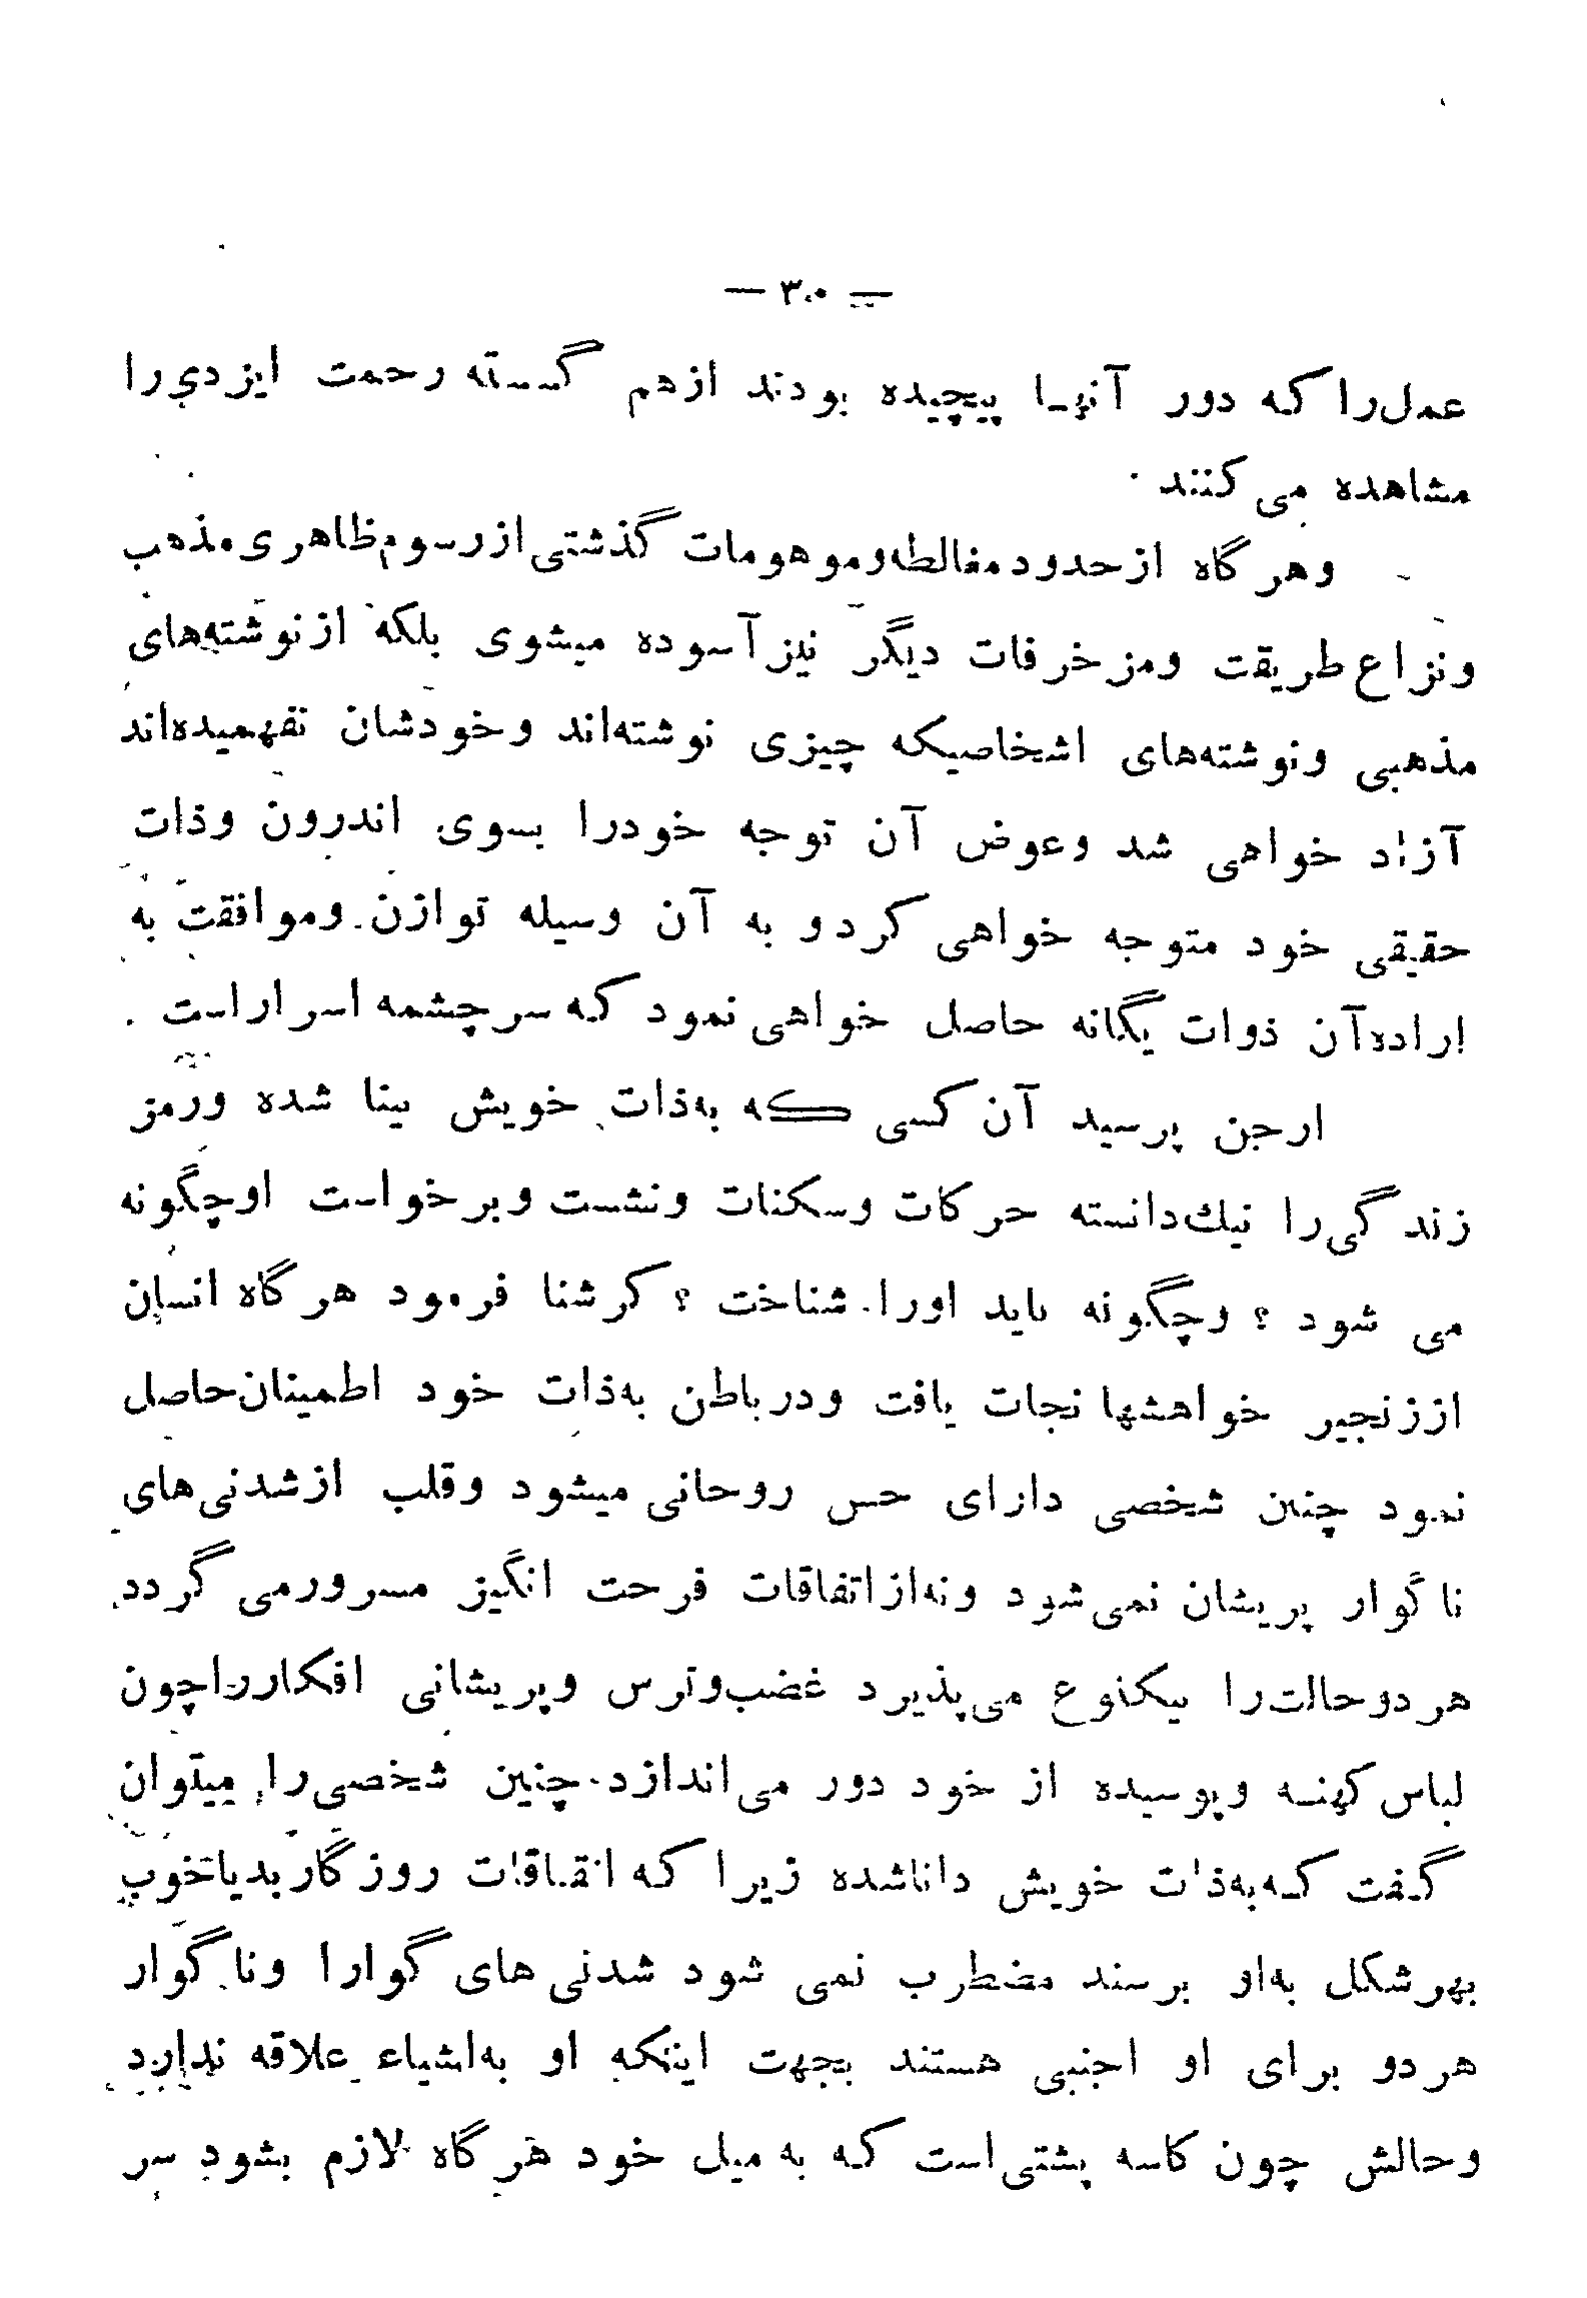 — ۳۰ —
عمل‌را که دور آنها پیچیده بودند ازهم گسسته رحمت ایزدی را
مشاهده می‌کنند .
وهرگاه ازحدود مغالطه‌وموهومات گذشتی‌ازرسوم‌ظاهری‌مذهب
ونزاع‌طریقت ومزخرفات دیگر نیزآسوده میشوی بلکه ازنوشته‌های
مذهبی ونوشته‌های اشخاصیکه چیزی نوشته‌اند وخودشان نفهمیده‌اند
آزاد خواهی شد وعوض آن توجه خودرا بسوی اندرون وذات
حقیقی خود متوجه خواهی کرد و به آن وسیله توازن وموافقت به
اراده‌آن ذوات یگانه حاصل خواهی‌نمود که سرچشمه اسراراست .
ارجن پرسید آن کسی که به‌ذات خویش بینا شده ورمز
زندگی‌را نیك‌دانسته حرکات وسکنات ونشست وبرخواست اوچگونه
می شود ؟ وچگونه باید اورا شناخت ؟ کرشنا فرمود هرگاه انسان
اززنجیر خواهشها نجات یافت ودرباطن به‌ذات خود اطمینان‌حاصل
نمود چنین شخصی دارای حس روحانی میشود وقلب ازشدنی‌های
ناگوار پریشان نمی‌شود ونه‌ازاتفاقات فرحت انگیز مسرورمی گردد
هردوحالت‌را بیکنوع می‌پذیرد غضب‌وترس وپریشانی افکارراچون
لباس کهنه وپوسیده از خود دور می‌اندازد. چنین شخصی‌را میتوان
گفت که‌به‌ذات خویش داناشده زیرا که اتفاقات روزگاربدیاخوب
بهرشکل به‌او برسند مضطرب نمی شود شدنی‌های گوارا وناگوار
هردو برای او اجنبی هستند بجهت اینکه او به‌اشیاء علاقه ندارد
وحالش چون کاسه پشتی‌است که به میل خود هرگاه لازم بشود سر